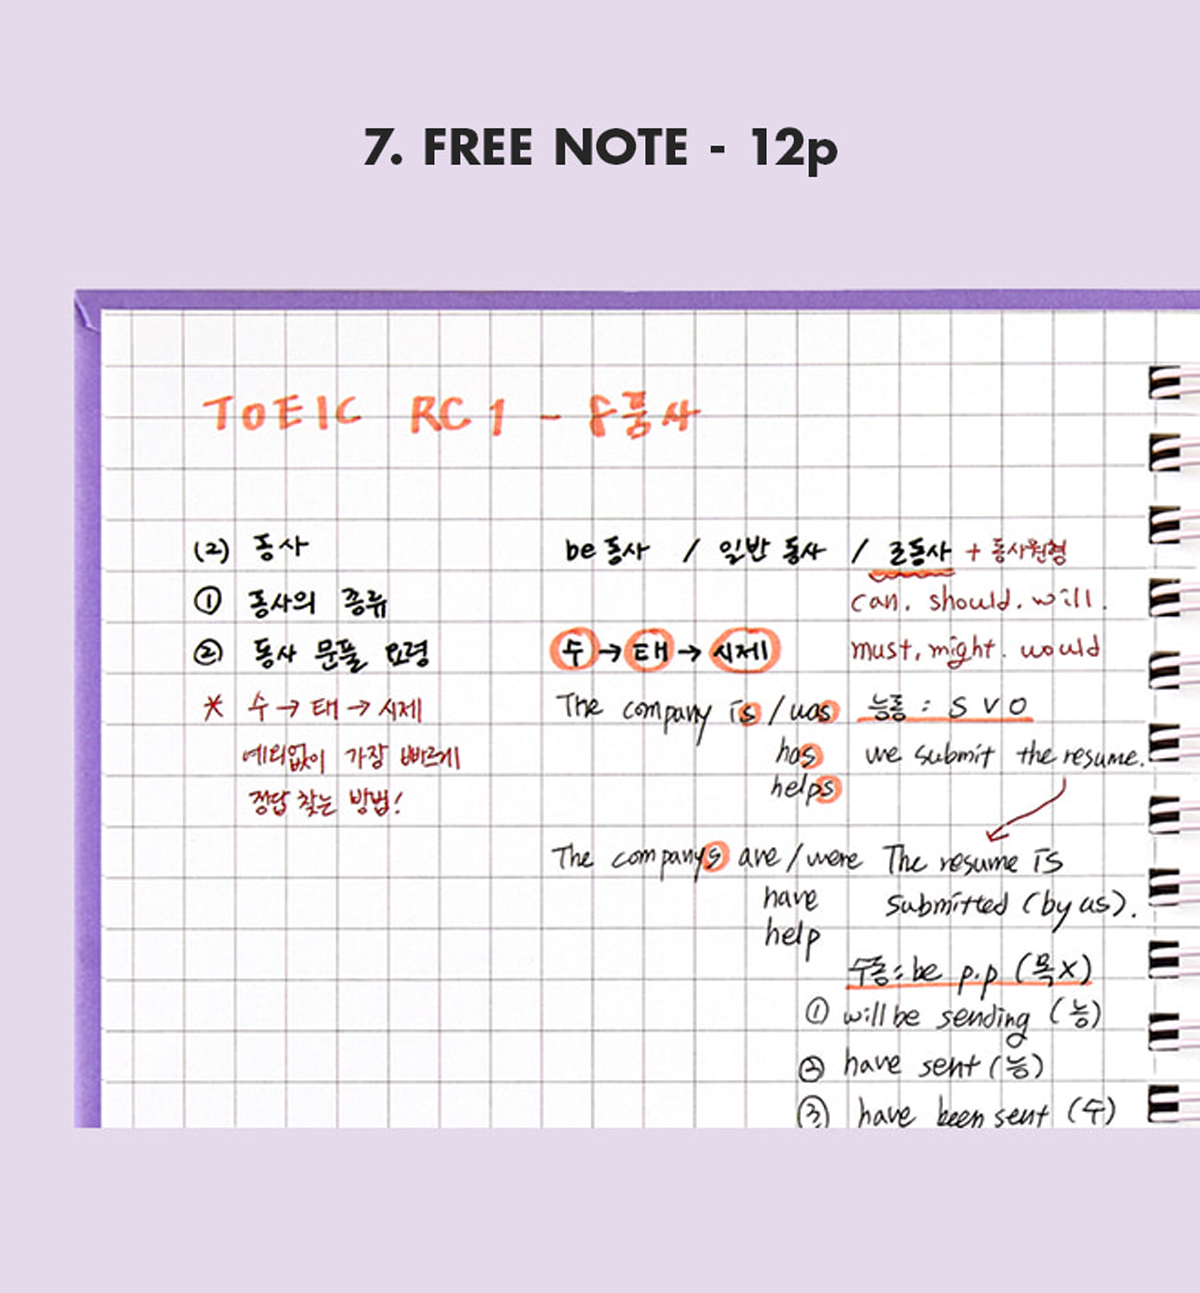 7. FREE NOTE - 12p
TOEIC RC 1 - 8품사
(2) 동사
① 동사의 종류
② 동사 문풀 요령
* 수 → 태 → 시제
예외없이 가장 빠르게
정답 찾는 방법!
be 동사 / 일반 동사 / 조동사 + 동사원형
can. should. will.
must, might. would
수 → 태 → 시제
The company is / was
has
helps
The companys are / were
have
help
능동 : S V O
we submit the resume.
The resume is
submitted (by us).
수동 : be p.p (목X)
① will be sending (능)
② have sent (능)
③ have been sent (수)